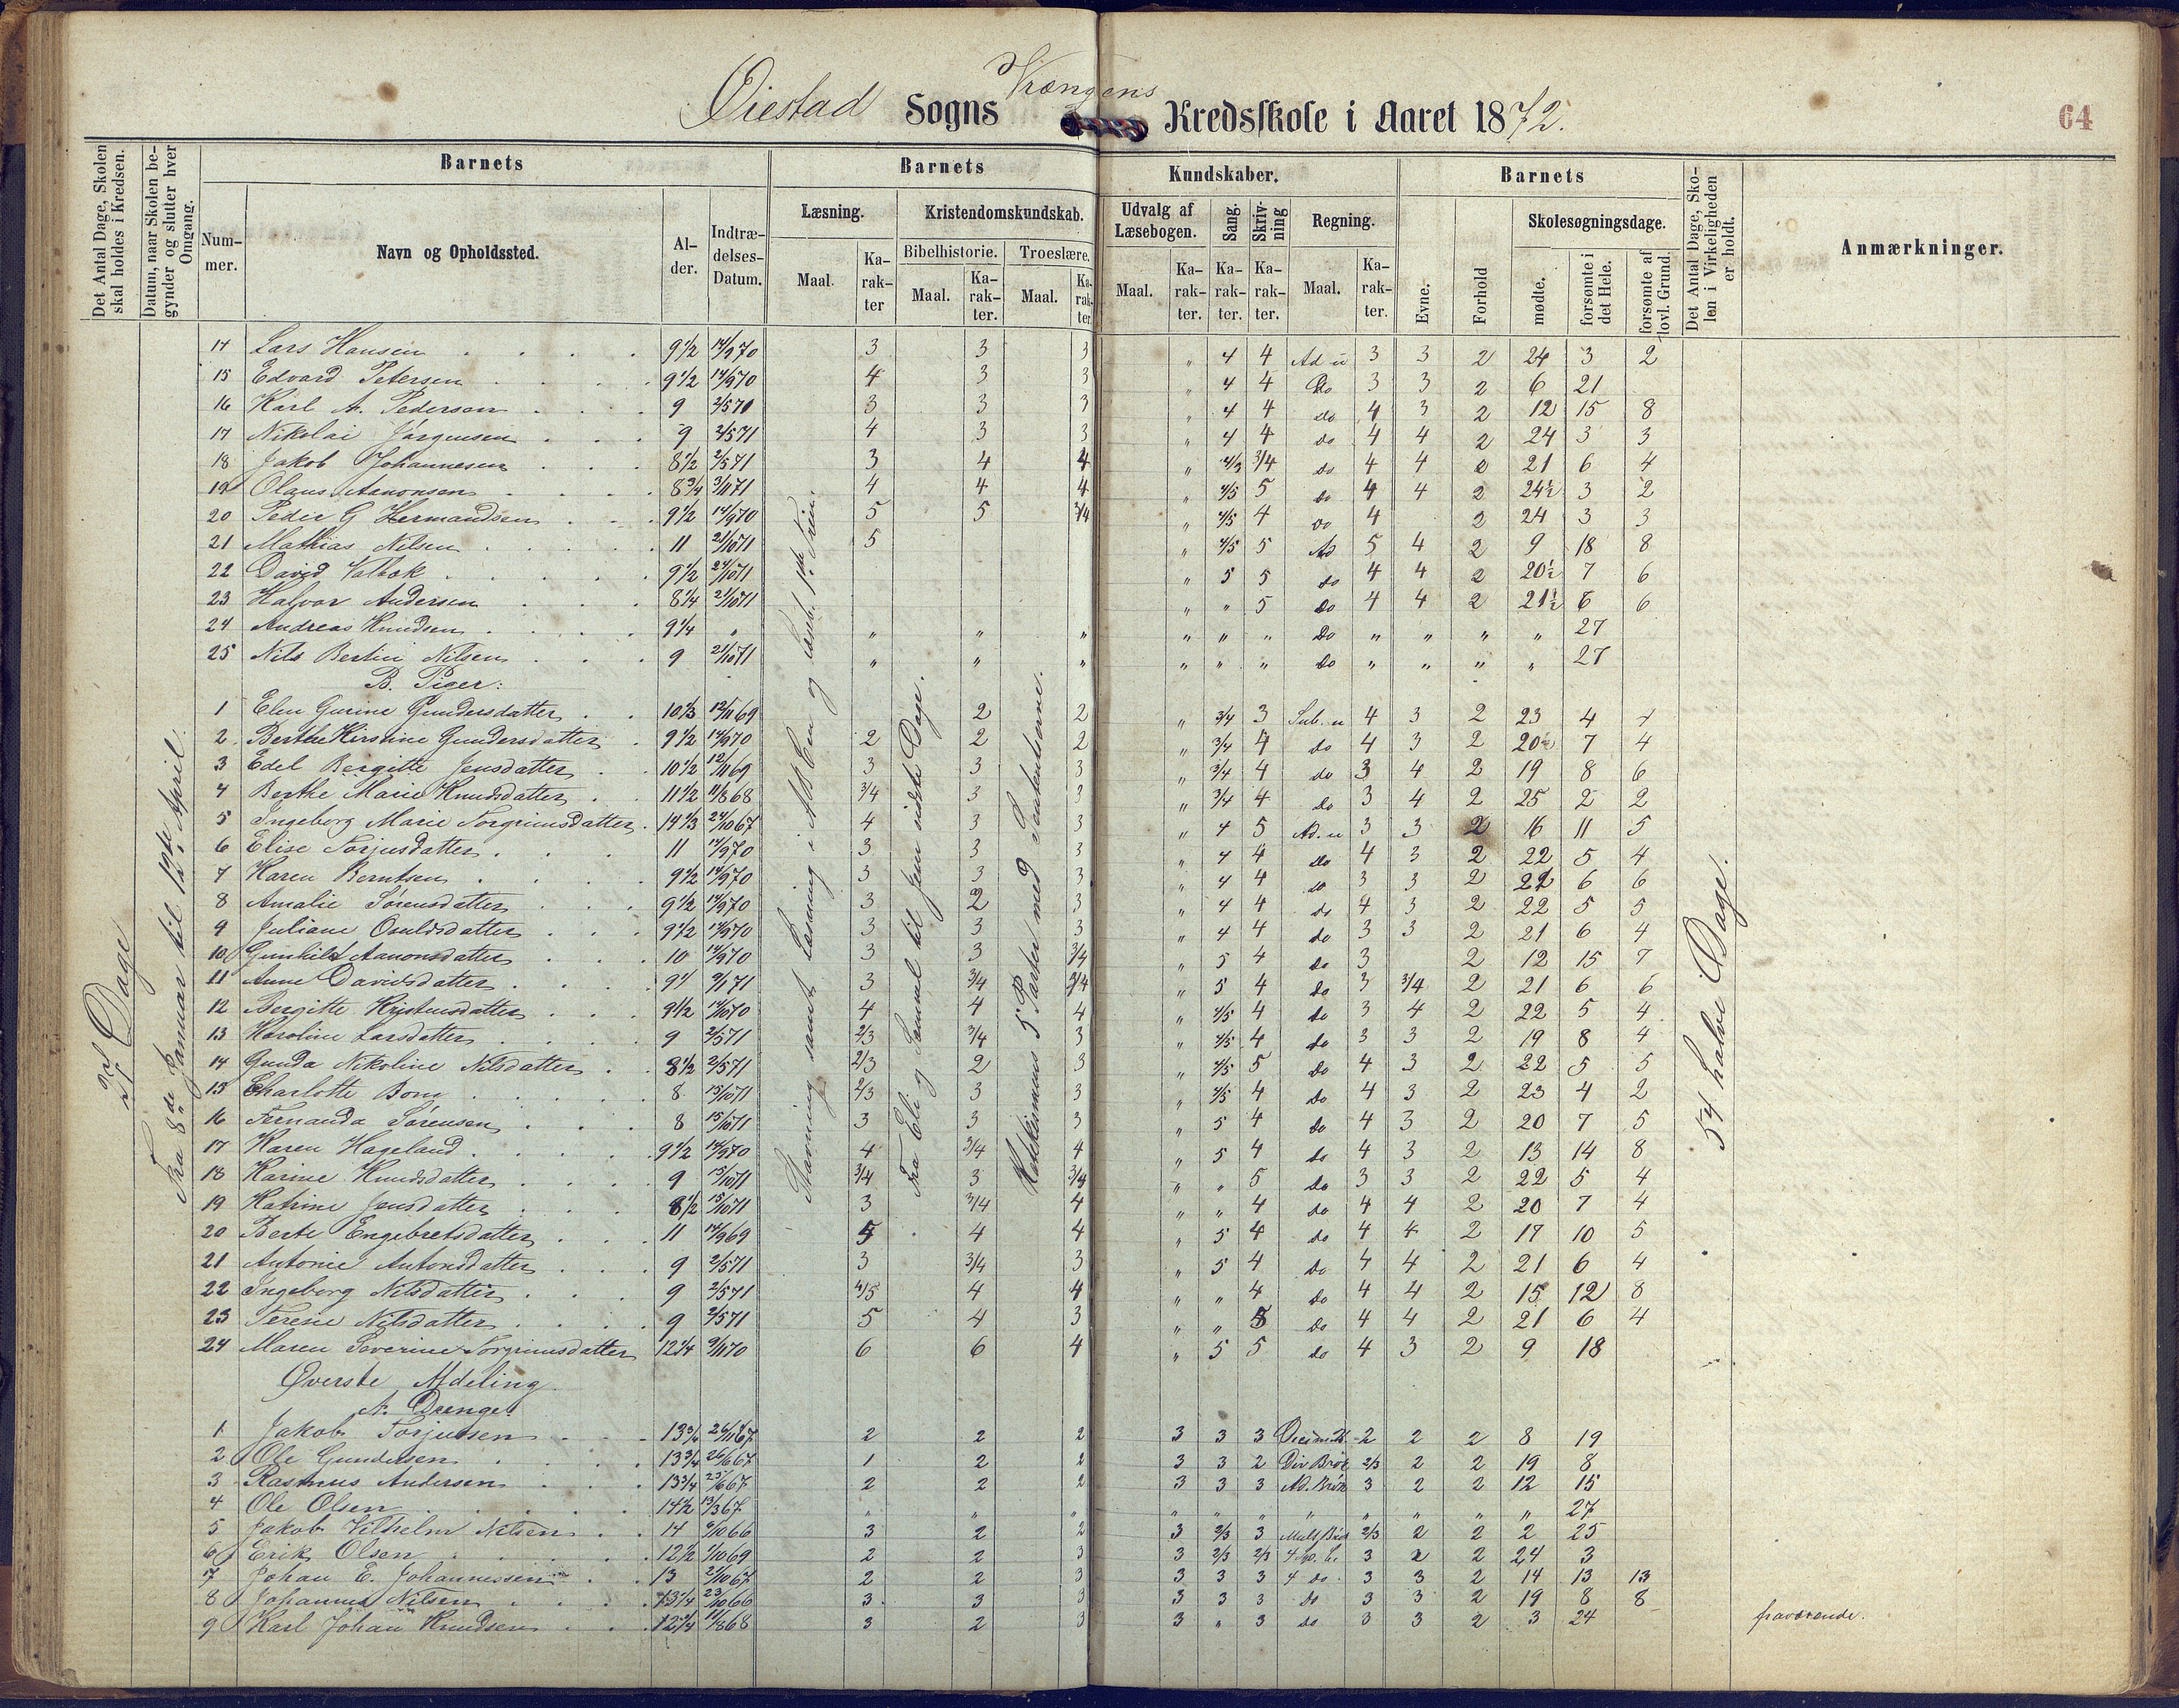 Øiestad Sogns Vrængens Kredsskole i Aaret 1872.
64
Det Antal Dage, Skolen skal holdes i Kredsen.
Datum, naar Skolen begynder og slutter hver Omgang.
Barnets
Nummer.
Navn og Opholdssted.
Alder.
Indtrædelses-Datum.
Barnets Kundskaber.
Læsning.
Maal.
Karakter
Kristendomskundskab.
Bibelhistorie.
Maal.
Karakter.
Troeslære.
Maal.
Karakter.
Udvalg af Læsebogen.
Maal.
Karakter.
Sang.
Karakter.
Skrivning
Karakter.
Regning.
Maal.
Karakter.
Barnets
Evne.
Forhold
Skolesøgningsdage.
mødte.
forsømte i det Hele.
forsømte af lovl. Grund.
Det Antal Dage, Skolen i Virkeligheden er holdt.
Anmærkninger.
27 Dage
Fra 8de Januar til 12te April.
Stavning samt Læsning i ABCen og Læseb. 1ste Trin.
Fra Eli og Samuel til Jesu sidste Dage.
Katekismens 5 Parter med Sententserne.
54 halve Dage.
14 Lars Hansen 9 1/2 14/9 70 3 3 3 " 4 4 Ad u 3 3 2 24 3 2
15 Edvard Petersen 9 1/2 14/9 70 4 3 3 " 4 4 Do 3 3 2 6 21
16 Karl A. Pedersen 9 2/5 71 3 3 3 " 4 4 do 4 3 2 12 15 8
17 Nikolai Jørgensen 9 2/5 71 4 3 3 " 4 4 do 4 4 2 24 3 3
18 Jakob Johannesen 8 1/2 2/5 71 3 4 4 " 3/4 do 4 4 21 6 4
19 Olaus Aanonsen 8 3/4 3/1 71 4 4 4 " 4/5 5 do 4 4 2 24 1/2 3 2
20 Peder G Hermandsen 9 1/2 14/9 70 5 5 3/4 " 4/5 4 do 4 2 24 3 3
21 Mathias Nilsen 11 21/10 71 5 " 4/5 5 Ad 5 4 2 9 18 8
22 David Valbok 9 1/2 24/10 71 " 5 5 do 4 4 2 20 1/2 7 6
23 Halvor Andersen 8 1/4 21/10 71 " " 5 do 4 4 2 21 1/2 6 6
24 Andreas Knudsen 9 1/4 " " " " " " " Do " " " " 27
25 Nils Bertin Nilsen 9 21/10 71 " " " " " " do " " " " 27
B. Piger:
1 Elen Gurine Gundersdatter 10 1/3 12/11 69 2 2 " 3/4 3 Sub. u 4 3 2 23 4 4
2 Berthe Kirstine Gundersdatter 9 1/2 14/9 70 2 2 2 " 3/4 4 do 4 3 2 20 1/2 7 4
3 Edel Bergitte Jensdatter 10 1/2 12/11 69 3 3 3 " 3/4 4 do 3 4 2 19 8 6
4 Berthe Marie Knudsdatter 11 1/2 11/8 68 3/4 3 3 " 3/4 4 do 3 4 2 25 2 2
5 Ingeborg Marie Torgrimsdatter 14 1/3 24/10 67 4 3 3 " 4 5 Ad. u 3 3 2 16 11 5
6 Elise Torjusdatter 11 14/9 70 3 3 3 " 4 4 do 4 3 2 22 5 4
7 Karen Berntsen 9 1/2 14/9 70 3 3 3 " 4 4 do 3 3 2 21 6 6
8 Amalie Sørensdatter 9 1/2 14/9 70 3 2 3 " 4 4 do 4 3 2 22 5 5
9 Juliane Osuldsdatter 9 1/2 14/9 70 3 3 3 " 4 4 do 3 3 2 21 6 4
10 Gunhild Aanonsdatter 10 14/9 70 3 3 3/4 " 5 4 do 3 2 12 15 7
11 Anne Davidsdatter 9 1/4 9/1 71 3 3/4 3/4 " 5 4 do 3 3/4 2 21 6 6
12 Bergitte Kristensdatter 9 1/2 14/10 70 4 4 4 " 4/5 4 do 3 4 2 22 5 4
13 Karoline Larsdatter 9 2/5 71 2/3 3/4 3 " 4/5 4 do 3 3 2 19 8 4
14 Gunda Nikoline Nilsdatter 8 1/2 2/5 71 2/3 2 3 " 4/5 5 do 4 3 2 22 5 5
15 Charlotte Bom 8 15/10 71 2/3 3 3 " 4/5 4 do 4 3 2 23 4 2
16 Fernanda Sørensen 8 15/10 71 3 3 3 " 5 4 do 4 3 2 20 7 5
17 Karen Hageland 9 1/2 14/9 70 4 3/4 4 " 5 4 do 4 3 2 13 14 8
18 Karine Knudsdatter 9 15/10 71 3/4 3 3/4 " " 5 do 3 3 2 22 5 4
19 Katrine Jensdatter 8 1/2 15/10 71 3 3/4 4 " " 4 do 4 4 2 20 7 4
20 Berte Engebretsdatter 11 14/9 69 5 4 4 " 5 4 do 4 4 2 17 10 5
21 Antonie Antonsdatter 9 2/5 71 3 3/4 3 " 5 4 do 4 4 2 21 6 4
22 Ingeborg Nilsdatter 9 2/5 71 4/5 4 4 " " 4 do 4 4 2 15 12 8
23 Terese Nilsdatter 9 2/5 71 5 4 3 " " 5 do 4 4 2 21 6 4
24 Maren Severine Torgrimsdatter 12 1/4 9/11 70 6 6 4 " 5 5 do 4 3 2 9 18
Øverste Afdeling.
A. Drenge.
1 Jakob Torjussen 13 3/4 26/11 67 2 2 2 3 3 3 2 2 2 8 19
2 Ole Gundersen 13 3/4 26/6 67 1 2 2 3 3 2 Div Brøk 2/3 2 2 19 8
3 Rasmus Andersen 13 3/4 25/6 67 2 2 2 3 3 3 Ad. Brøk 3 2 2 12 15
4 Ole Olsen 14 1/2 13/3 67 " " " " " " " " " " " 27
5 Jakob Vilhelm Nilsen 14 6/10 66 3 2 2 3 2/3 3 Mult Brøk 2/3 2 2 2 25
6 Erik Olsen 12 1/2 1/10 69 2 2 3 3 2/3 2/3 3 2 2 24 3
7 Johan E. Johannessen 13 2/10 67 2 2 3 3 3 3 4 do. 3 3 2 14 13 13
8 Johannes Nilsen 13 1/4 23/10 66 3 3 3 3 3 3 do 3 3 2 19 8 8
9 Karl Johan Knudsen 12 3/4 11/8 68 3 2 3 3 " 3 do 3 3 2 3 24 fraværende.